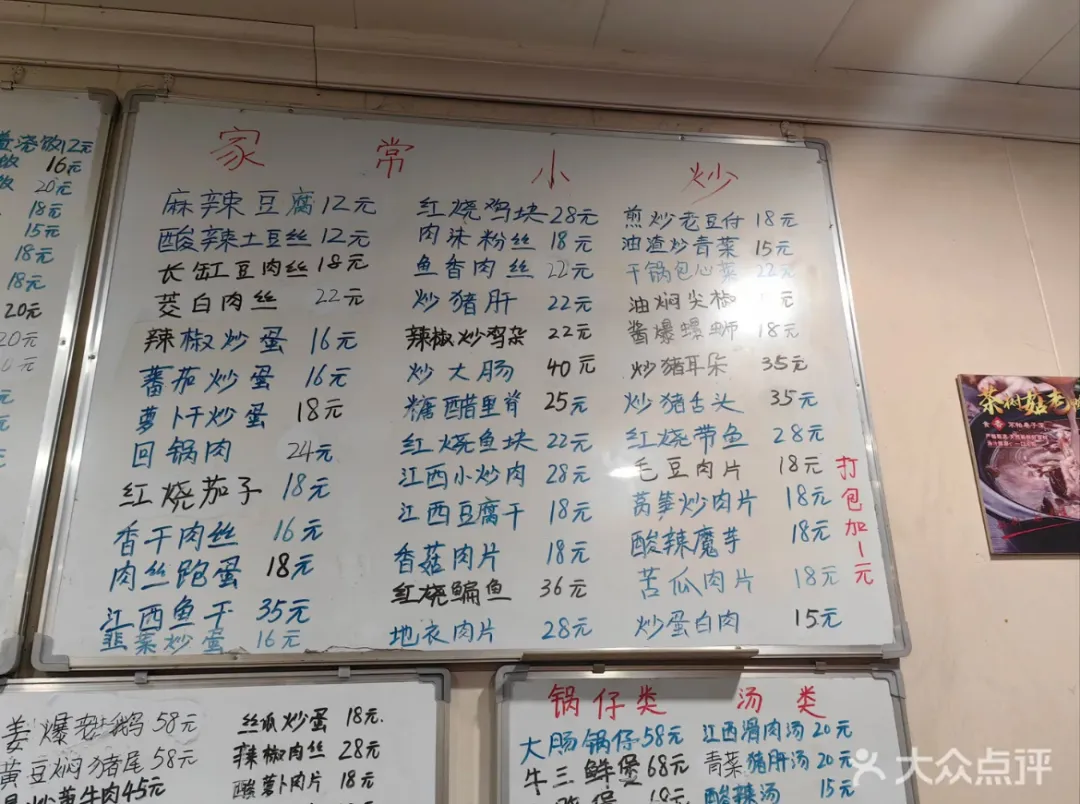 家常小炒
麻辣豆腐12元
酸辣土豆丝12元
长缸豆肉丝18元
茭白肉丝 22元
辣椒炒蛋 16元
蕃茄炒蛋 16元
萝卜干炒蛋 18元
回锅肉 24元
红烧茄子 18元
香干肉丝 16元
肉丝跑蛋 18元
江西鱼干 35元
韭菜炒蛋 16元
红烧鸡块28元
肉沫粉丝 18元
鱼香肉丝 22元
炒猪肝 22元
辣椒炒鸡杂 22元
炒大肠 40元
糖醋里脊 25元
红烧鱼块 22元
江西小炒肉 28元
江西豆腐干 18元
香菇肉片 18元
红烧鳊鱼 36元
地衣肉片 28元
煎炒老豆付 18元
油渣炒青菜 15元
干锅包心菜 22元
油焖尖椒 元
酱爆螺蛳 18元
炒猪耳朵 35元
炒猪舌头 35元
红烧带鱼 28元
毛豆肉片 18元
莴笋炒肉片 18元
酸辣魔芋 18元
苦瓜肉片 18元
炒蛋白肉 15元
打包加1元
浇饭12元
16元
20元
18元
15元
18元
18元
20元
20元
16元
姜爆鹅58元
黄豆焖猪尾58元
炒黄牛肉45元
丝瓜炒蛋 18元
辣椒肉丝 28元
酸萝卜肉片 18元
锅仔类
大肠锅仔58元
牛三鲜煲68元
煲
汤类
江西滑肉汤20元
青菜猪肝汤20元
酸辣汤 15元
茶树菇老
大众点评